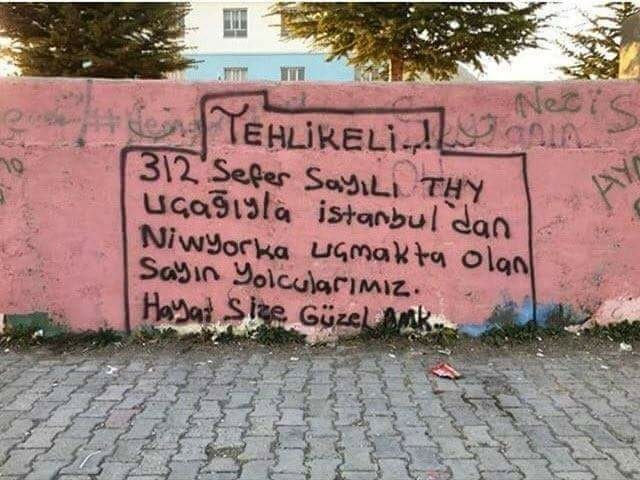 TEHLİKELİ..!
312 Sefer SayILI THY
uçağıyla istanbul'dan
Niwyorka uçmakta olan
Sayın Yolcularımız.
Hayat Size Güzel AMK..
Necis